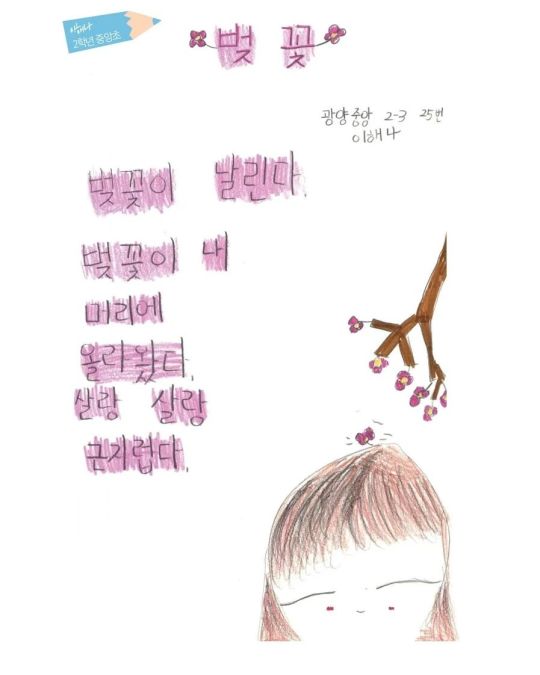 이해나
2학년 중앙초
벚꽃
광양중앙 2-3 25번
이해나
벚꽃이 날린다.
벚꽃이 내
머리에
올라왔다.
살랑 살랑
근지럽다.